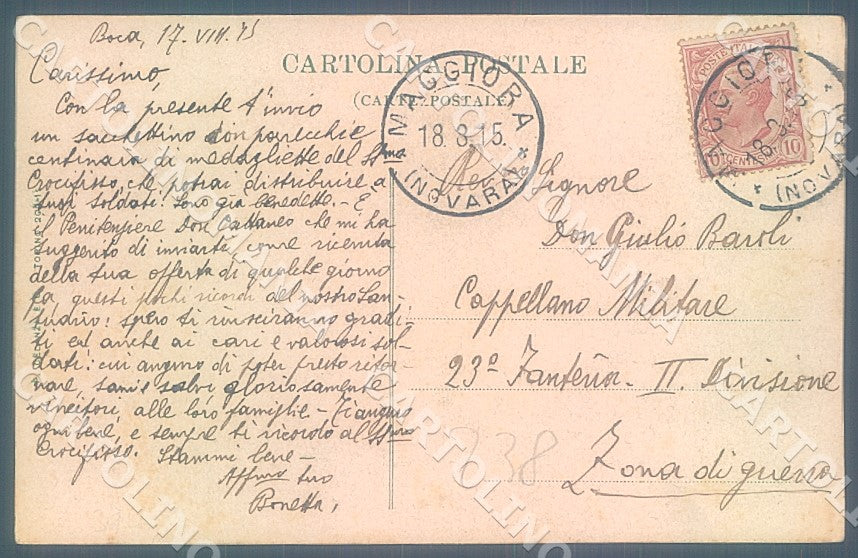 Boca, 17. VIII. 15
CARTOLINA POSTALE
(CARTE POSTALE)
Carissimo,
Con la presente t'invio
un sacchettino con parecchie
centinaia di medagliette del SSmo
Crocifisso, che potrai distribuire a
tuoi soldati. Sono già benedette. - È
il Penitenziere Don Cattaneo che mi ha
suggerito di inviarti, come ricevuta
della tua offerta di qualche giorno
fa, questi pochi ricordi del nostro San-
tuario: spero ti riusciranno gradi-
ti ed anche ai cari e valorosi sol-
dati: cui auguro di poter presto ritor-
nare, sani e salvi gloriosamente
vincitori, alle loro famiglie - Ti auguro
ogni bene, e sempre ti ricordo al SSmo
Crocifisso. Stammi bene -
Affmo tuo
Bonetta,
MAGGIORA
18.8.15.
(NOVARA)
POSTE ITALIANE
CENTESIMI 10
MAGGIORA
(NOVARA)
Signore
Don Giulio Baroli
Cappellano Militare
23º Fanteria - II. Divisione
Zona di guerra
238
CARTOLINOMANIA